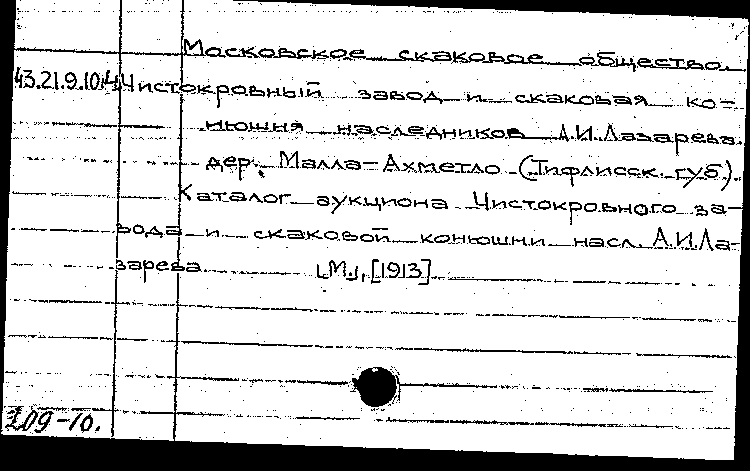 Московское скаковое общество.
43.21.9.104 Чистокровный завод и скаковая ко-
нюшня наследников А.И.Лазарева.
дер. Малла-Ахметло (Тифлисск. губ.).
Каталог аукциона Чистокровного за-
вода и скаковой конюшни насл. А.И.Ла-
зарева [М.], [1913]
109-10.